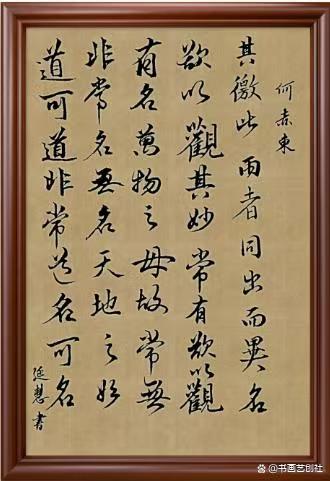 道可道非常道名可名
非常名無名天地之始
有名萬物之母故常無
欲以觀其妙常有欲以觀
其徼此兩者同出而異名
何東
延慧書
@书画艺创社